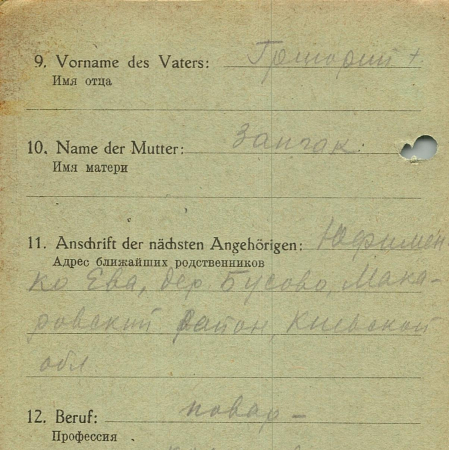 9. Vorname des Vaters: Григорий +
Имя отца
10. Name der Mutter: Запгак
Имя матери
11. Anschrift der nächsten Angehörigen: Юфимен-
Адрес ближайших родственников
ко Ева, дер. Бусово, Мака-
ровский район, Киевской
обл
12. Beruf: повар –
Профессия